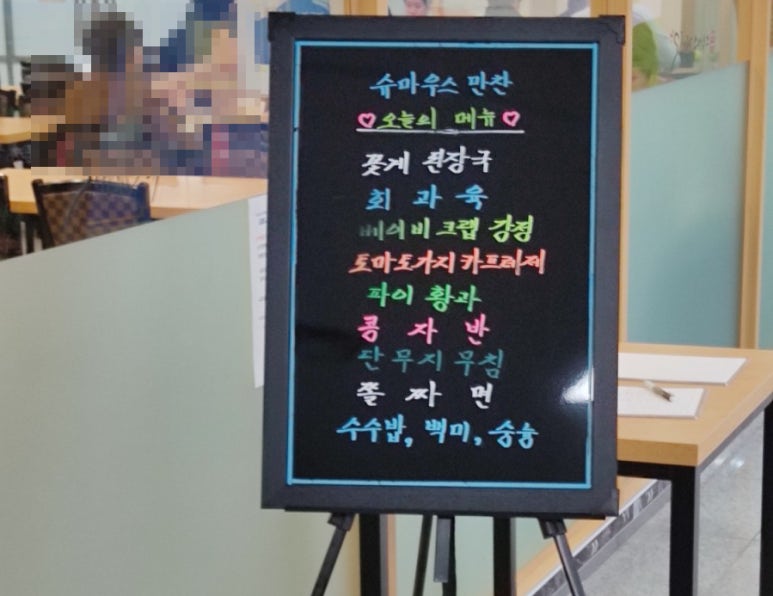 슈마우스 만찬
♡오늘의 메뉴♡
꽃게 된장국
회 과 육
베이비크랩 강정
토마토가지카프레제
파이 황과
콩 자 반
단무지무침
쫄 짜 면
수수밥, 백미, 숭늉